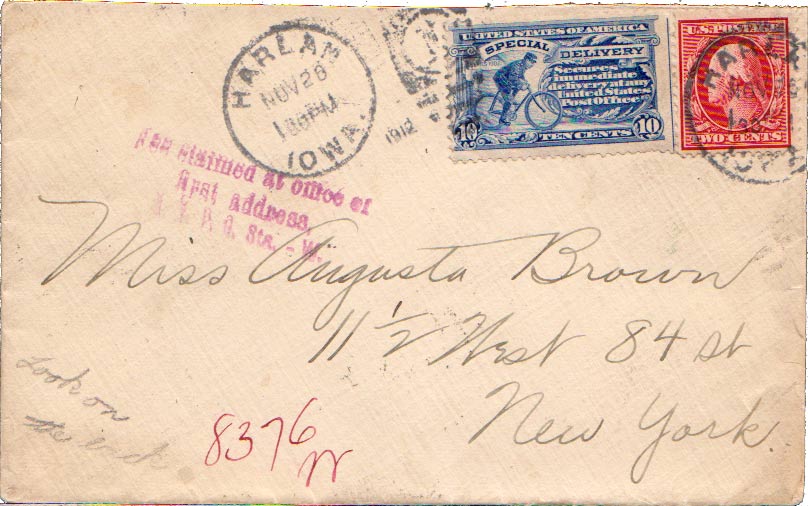 HARLAN
NOV 26
IOWA.
1912
UNITED STATES OF AMERICA
SPECIAL DELIVERY
Secures
immediate
delivery at any
United States
Post Office.
10 TEN CENTS 10
U.S. POSTAGE
TWO CENTS
claimed at office of
first address,
Sta. - W.
Miss Augusta Brown
11½ West 84 st
New York.
Look on
the back
8376
W